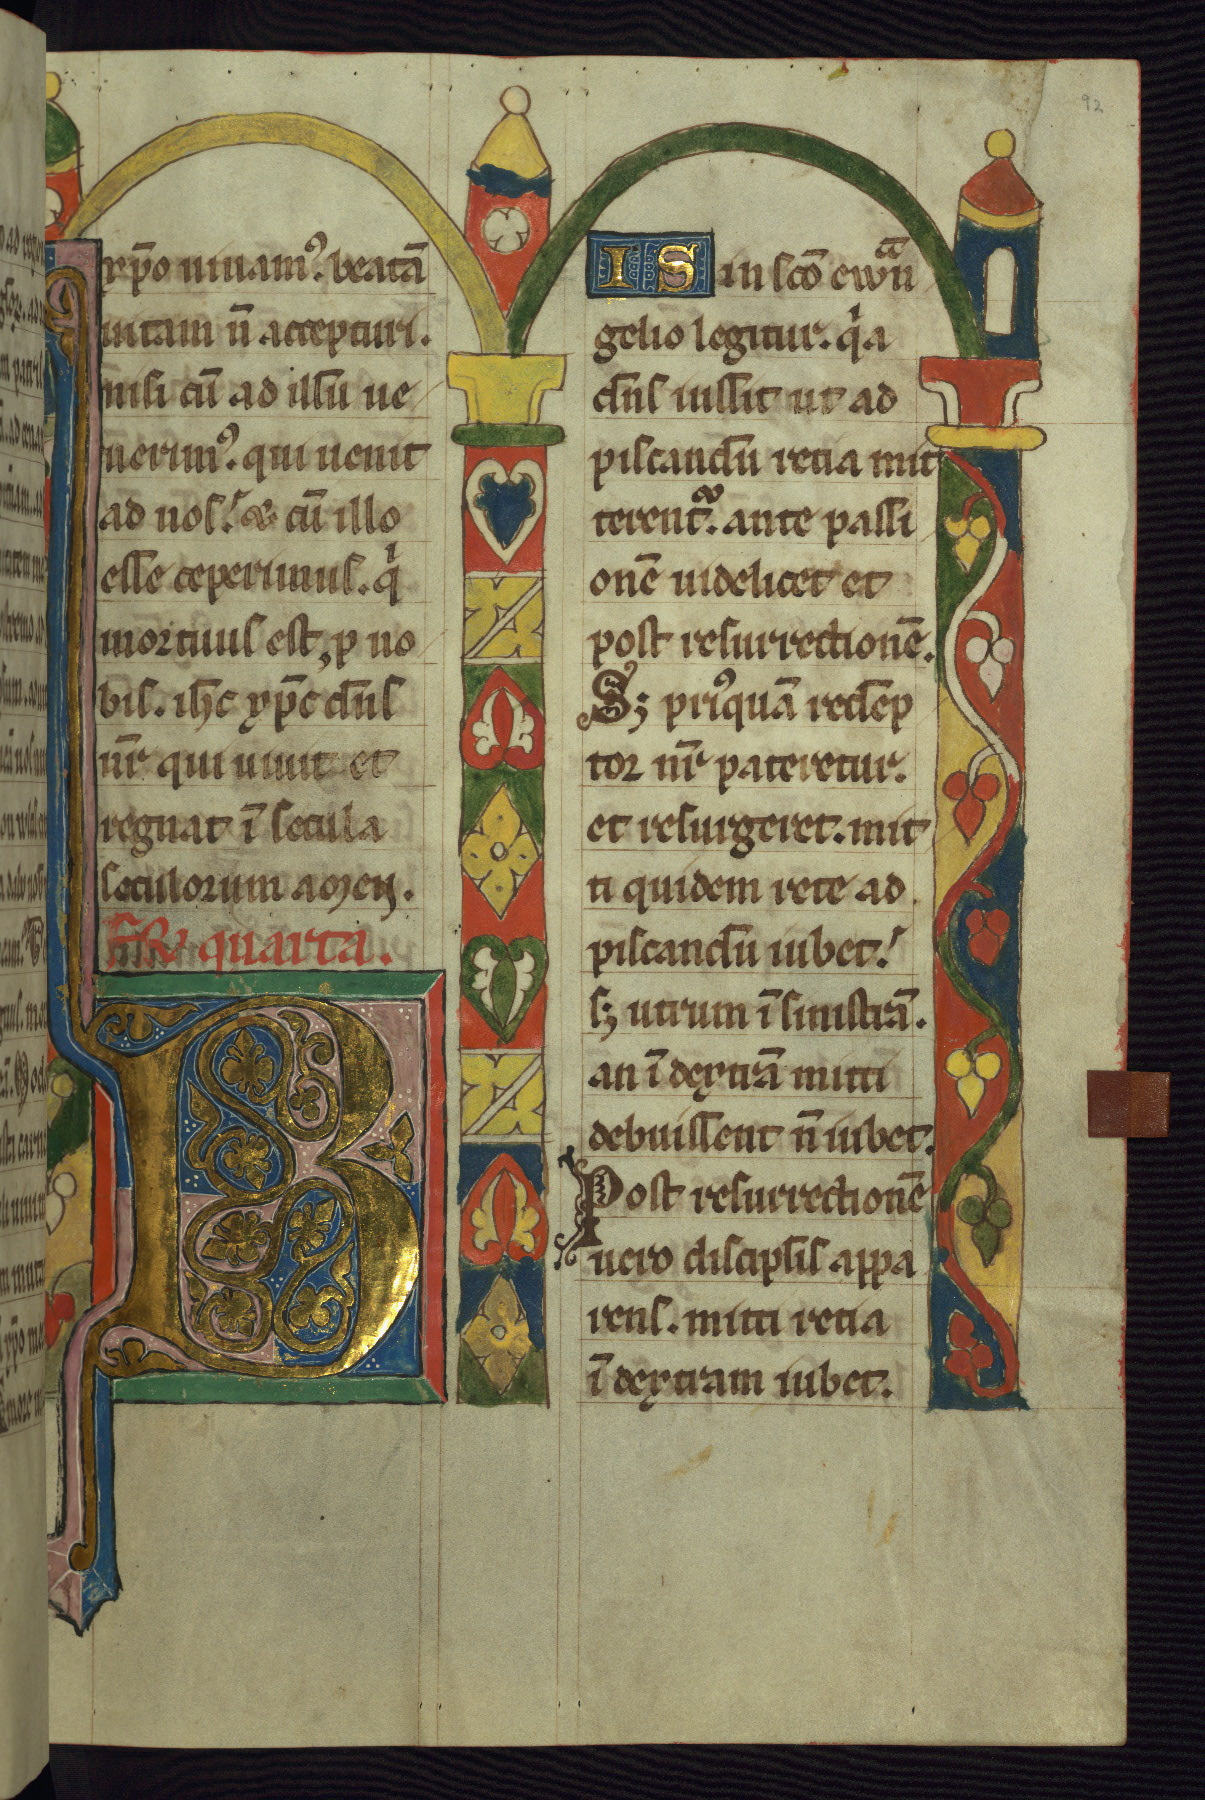 92
xp̄o uiuam᷒. beatā
uitam n̄ accepturi.
nisi cū ad illū ue
nerim᷒. qui uenit
ad nos. & cū illo
esse ceperimus. qͥ
mortuus est, p no
bis. ih̄c xp̄c dn̄s
nr̄ qui uiuit et
regnat ī secula
seculorum amen.
FR̄ quarta.
B
IS in sc̄o ewāɴ
gelio legitur. qͥa
dn̄s iussit ut ad
piscandū retia mit
terent᷒. ante passi
onē uidelicet et
post resurrectionē.
S; pri᷒quā redēp
tor nr̄ pateretur.
et resurgeret. mit
ti quidem rete ad
piscandū iubet.
s; utrum ī sinistrā.
an ī dextrā mitti
debuissent n̄ iubet.
Post resurrectionē
uero discipl̄is appa
rens. mitti retia
ī dextram iubet.